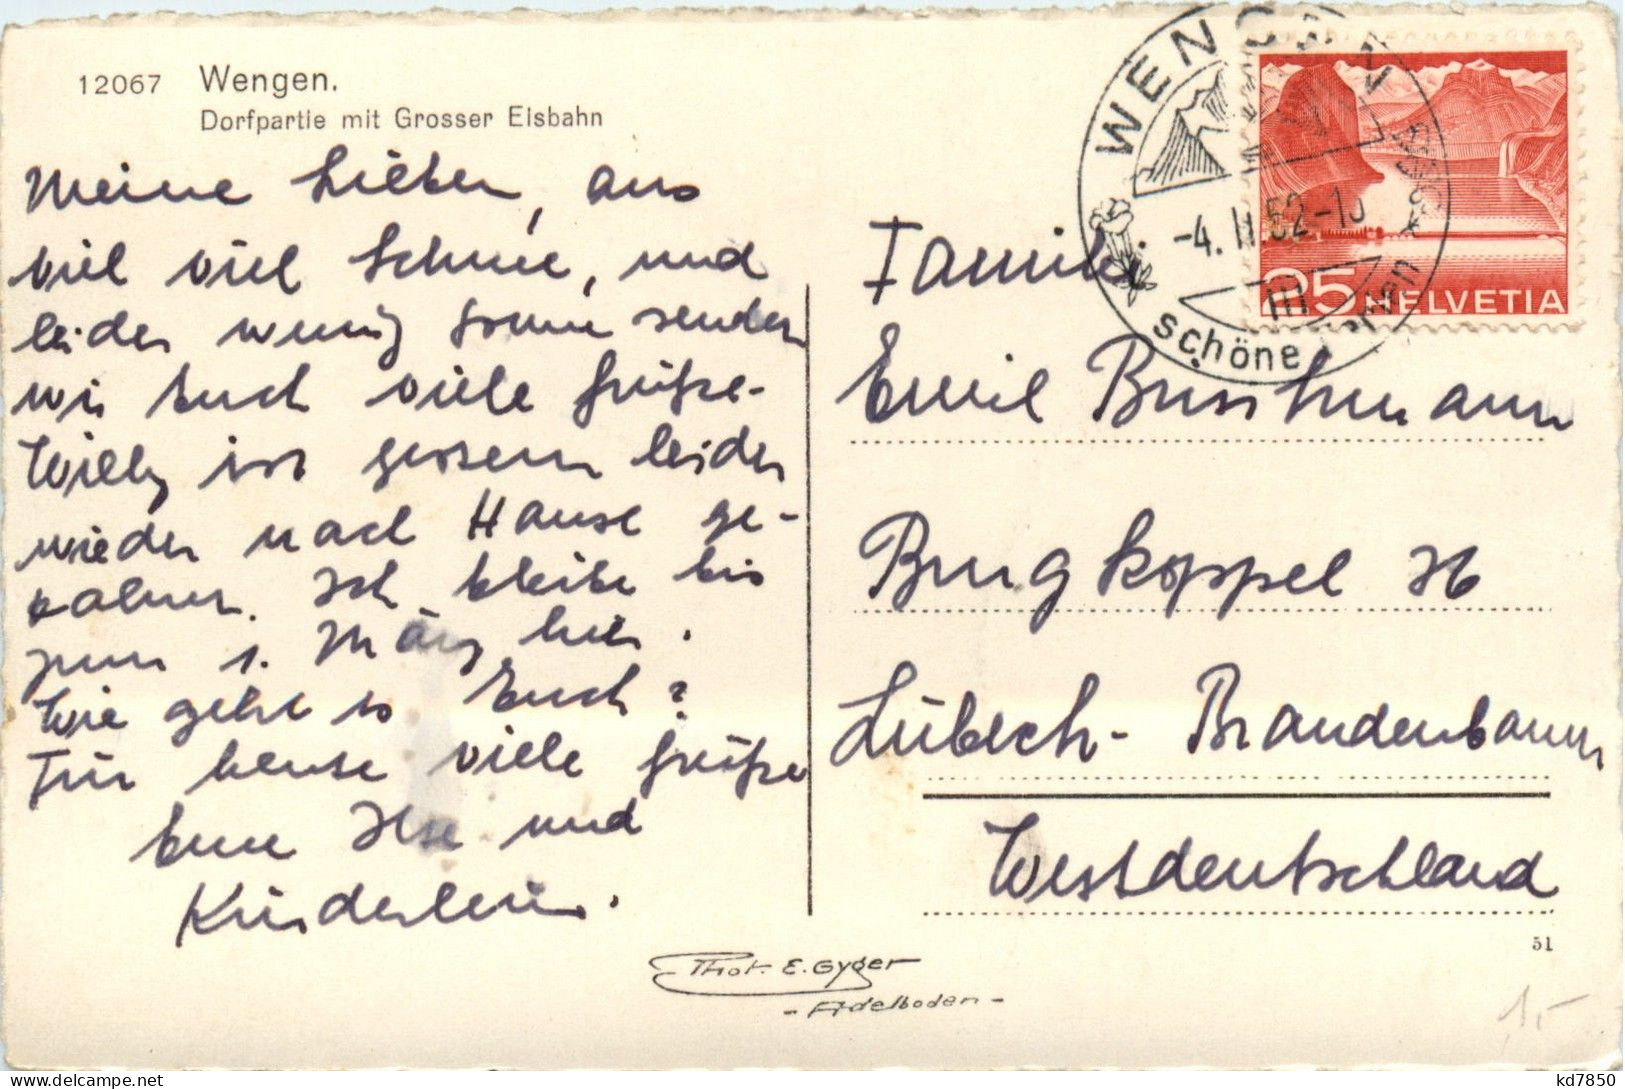 12067 Wengen.
Dorfpartie mit Grosser Eisbahn
Meine Lieben, aus
viel viel Schnee, und
leider wenig Sonne senden
wir Euch viele Grüße.
Willy ist gestern leider
wieder nach Hause ge-
fahren. Ich bleibe bis
zum 1. März hier.
Wie geht es Euch?
Für heute viele Grüße
Eure Ilse und
Kinderlein.
WENGEN
-4. II. 52-1
schöne Ferien
25 HELVETIA
Familie
Emil Buschmann
Burgkoppel 76
Lübeck- Brandenbaum
Westdeutschland
51
Phot. E. Gyger
- Adelboden -
1,-
kd7850